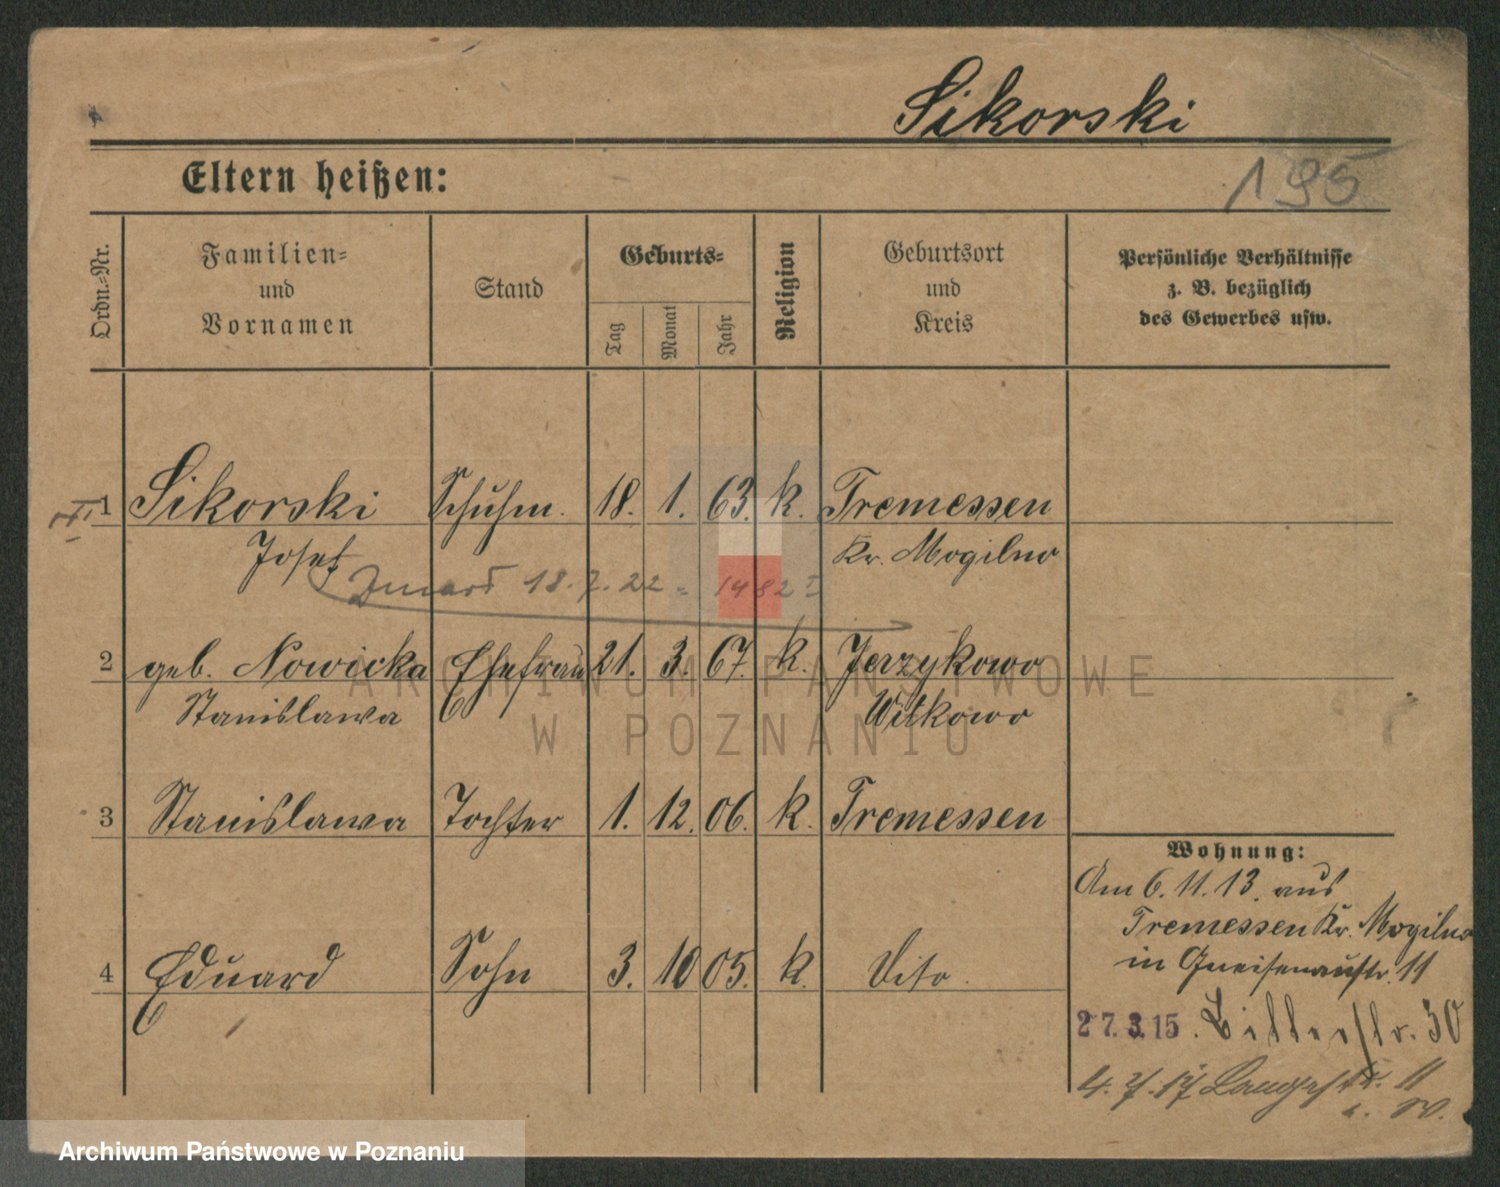 Sikorski
195
Eltern heißen:
Ordn.-Nr.
Familien-
und
Vornamen
Stand
Geburts-
Tag
Monat
Jahr
Religion
Geburtsort
und
Kreis
Persönliche Verhältnisse
z. B. bezüglich
des Gewerbes usw.
1 Sikorski Schuhm. 18. 1. 63. k. Tremessen
Josef Kr. Mogilno
18.7.22 = 1482
2 geb. Nowicka Ehefrau 21. 3. 67. k. Jerzykowo
Stanislawa Witkowo
ARCHIWUM PAŃSTWOWE
W POZNANIU
3 Stanislawa Tochter 1. 12. 06. k. Tremessen
4 Eduard Sohn 3. 10 05. k. dito.
Wohnung:
Am 6.11.13. aus
Tremessen Kr. Mogilno
in Gneisenaustr. 11
27.3.15.
4.7.17 Langestr. 11
Archiwum Państwowe w Poznaniu